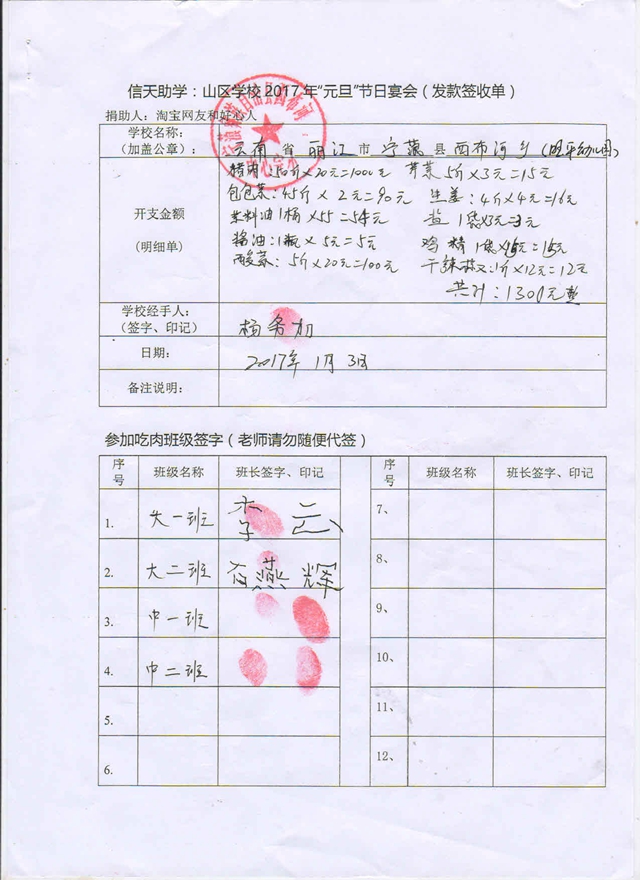 信天助学：山区学校2017年“元旦”节日宴会（发款签收单）
捐助人：淘宝网友和好心人
学校名称：
（加盖公章）：
云南 省 丽江 市 宁蒗 县 西布河乡（ 幼儿园）
开支金额
（明细单）
猪肉：50斤×20元=1000元 芹菜 5斤×3元=15元
包包菜：45斤×2元=90元 生姜：4斤×4元=16元
油1桶×55=54元 盐1袋×3元=3元
酱油：1瓶×5元=5元 鸡精1袋×15元=15元
酸菜：5斤×20元=100元 干辣 ：1斤×12元=12元
共计：1301元
学校经手人：
（签字、印记）
杨务加
日期：
2017年1月3日
备注说明：
参加吃肉班级签字（老师请勿随便代签）
序号 班级名称 班长签字、印记 序号 班级名称 班长签字、印记
1. 大一班 李云 7、
2. 大二班 燕辉 8、
3. 中一班 9、
4. 中二班 10、
5. 11、
6. 12、